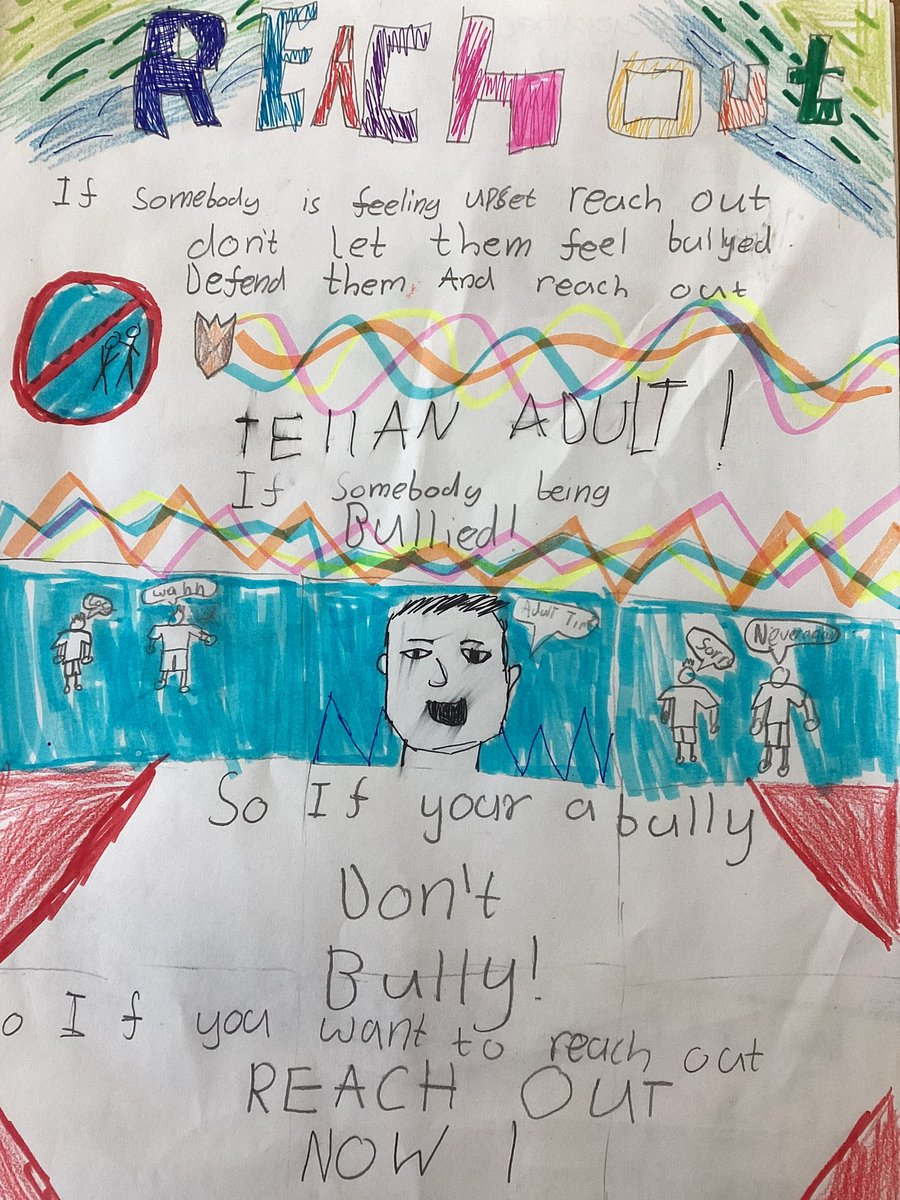 REACH OUT
If Somebody is feeling upset reach out
don't let them feel bullyed.
Defend them. And reach out
tEllAN ADULT!
If Somebody being
Bullied!
wahh
Adult Time
Sorry
Never again
So If your a bully
Don't
Bully!
o If you want to reach out
REACH OUT
NOW!